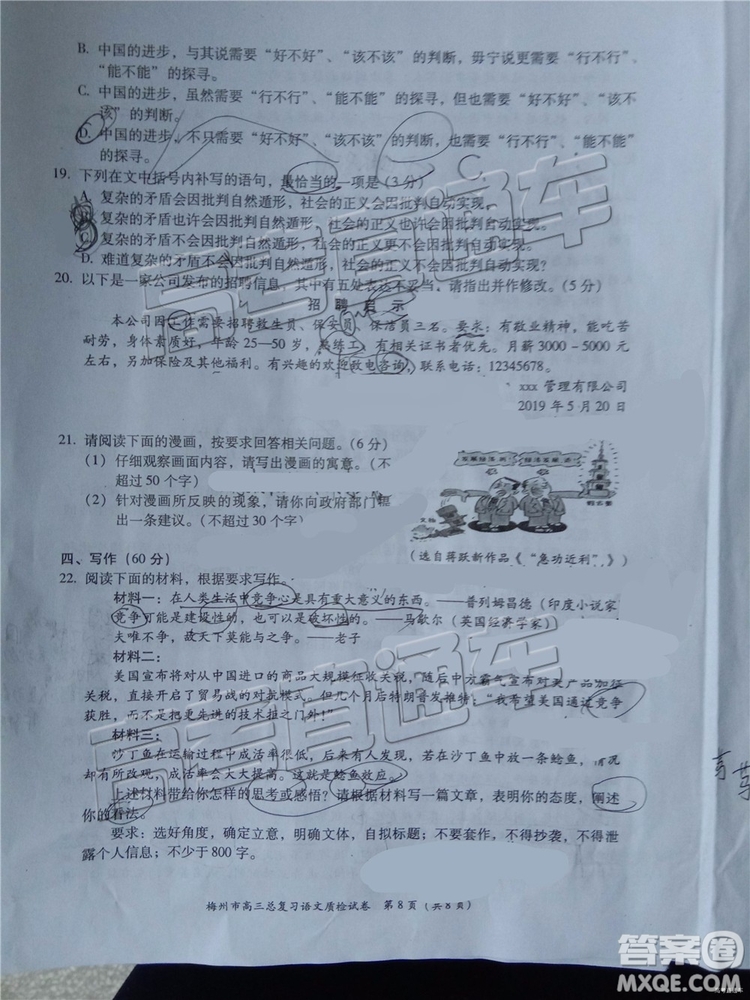 B. 中国的进步，与其说需要“好不好”、“该不该”的判断，毋宁说更需要“行不行”、
“能不能”的探寻。
C. 中国的进步，虽然需要“行不行”、“能不能”的探寻，但也需要“好不好”、“该不
该”的判断。
D. 中国的进步，不只需要“好不好”、“该不该”的判断，也需要“行不行”、“能不能”
的探寻。
19. 下列在文中括号内补写的语句，最恰当的一项是（3 分）
A. 复杂的矛盾会因批判自然遁形，社会的正义会因批判自动实现。
B. 复杂的矛盾也许会因批判自然遁形，社会的正义也许会因批判自动实现。
C. 复杂的矛盾不会因批判自然遁形，社会的正义更不会因批判自动实现。
D. 难道复杂的矛盾不会因批判自然遁形，社会的正义不会因批判自动实现？
20. 以下是一家公司发布的招聘信息，其中有五处表达不妥当，请指出并作修改。（5 分）
招 聘 启 示
本公司因工作需要招聘救生员、保安员、保洁员三名。要求：有敬业精神，能吃苦
耐劳，身体素质好，年龄 25—50 岁，熟练工；有相关证书者优先。月薪 3000－5000 元
左右，另加保险及其他福利。有兴趣的欢迎致电咨询，联系电话：12345678。
xxx 管理有限公司
2019 年 5 月 20 日
21. 请阅读下面的漫画，按要求回答相关问题。（6 分）
（1）仔细观察画面内容，请写出漫画的寓意。（不
超过 50 个字）
（2）针对漫画所反映的现象，请你向政府部门提
出一条建议。（不超过 30 个字）
文物
（选自蒋跃新作品《“急功近利”》）
四、写作（60 分）
22. 阅读下面的材料，根据要求写作。
材料一：在人类生活中竞争心是具有重大意义的东西。——普列姆昌德（印度小说家
竞争可能是建设性的，也可以是破坏性的。——马歇尔（英国经济学家））
夫唯不争，故天下莫能与之争。——老子
材料二：
美国宣布将对从中国进口的商品大规模征收关税，随后中方霸气宣布对美产品加征
关税，直接开启了贸易战的对抗模式。但几个月后特朗普发推特：“我希望美国通过竞争
获胜，而不是把更先进的技术拒之门外！”
材料三：
沙丁鱼在运输过程中成活率很低，后来有人发现，若在沙丁鱼中放一条鲶鱼，情况
却有所改观，成活率会大大提高。这就是鲶鱼效应。
上述材料带给你怎样的思考或感悟？请根据材料写一篇文章，表明你的态度，阐述
你的看法。
要求：选好角度，确定立意，明确文体，自拟标题；不要套作，不得抄袭，不得泄
露个人信息；不少于 800 字。
梅州市高三总复习语文质检试卷 第 8 页（共 8 页）
高考直通车
高考直通车
答案圈
MXQE.COM